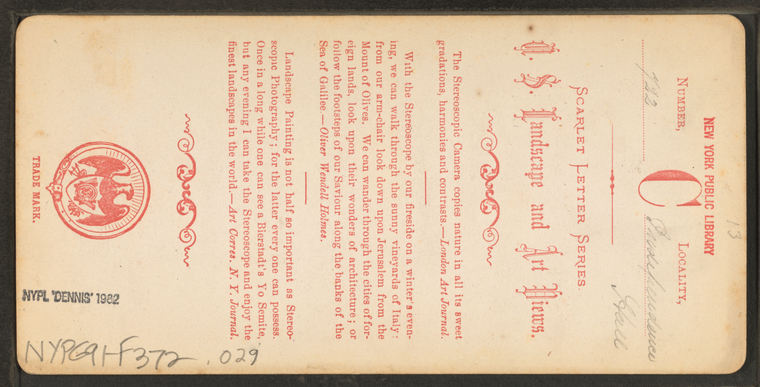 13
NEW YORK PUBLIC LIBRARY
NUMBER, C LOCALITY,
Independence
Hall
SCARLET LETTER SERIES.
U. S. Landscape and Art Views.
The Stereoscopic Camera copies nature in all its sweet
gradations, harmonies and contrasts.—London Art Journal.
With the Stereoscope by our fireside on a winter's even-
ing, we can walk through the sunny vineyards of Italy:
from our arm-chair look down upon Jerusalem from the
Mount of Olives. We can wander through the cities of for-
eign lands, look upon their wonders of architecture; or
follow the footsteps of our Saviour along the banks of the
Sea of Galilee.—Oliver Wendell Holmes.
Landscape Painting is not half so important as Stereo-
scopic Photography; for the latter every one can possess.
Once in a long while one can see a Bierstadt's Yo Semite,
but any evening I can take the Stereoscope and enjoy the
finest landscapes in the world.—Art Corres. N. Y. Journal.
TRADE MARK.
NYPL 'DENNIS' 1982
NYPG91-F372 .029